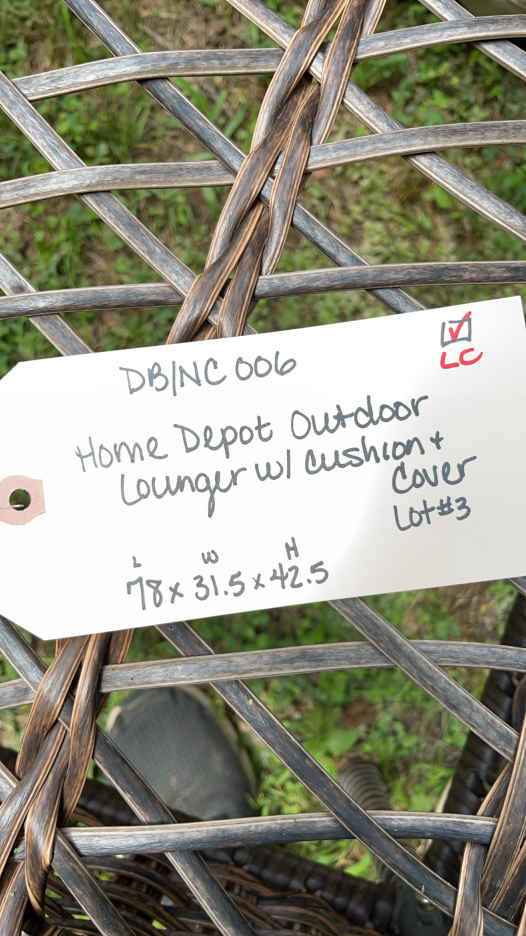 DB/NC 006
LC
Home Depot Outdoor
Lounger w/ cushion +
Cover
Lot #3
L W H
78 x 31.5 x 42.5